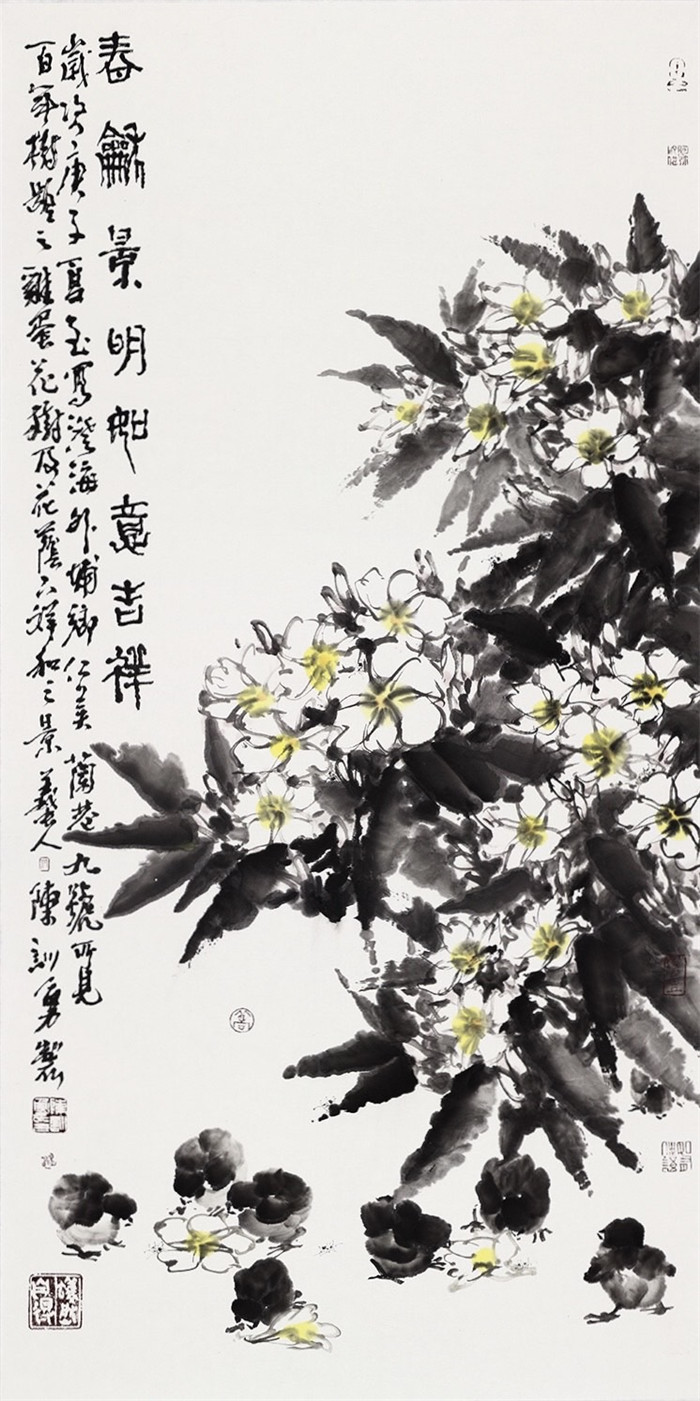 春龢景明如意吉祥
歲次庚子夏至寫澄海外埔鄉仁美蘭巷九號所見
百年樹齡之雞蛋花樹及花蔭下祥和之景 羲人 陳訓勇製